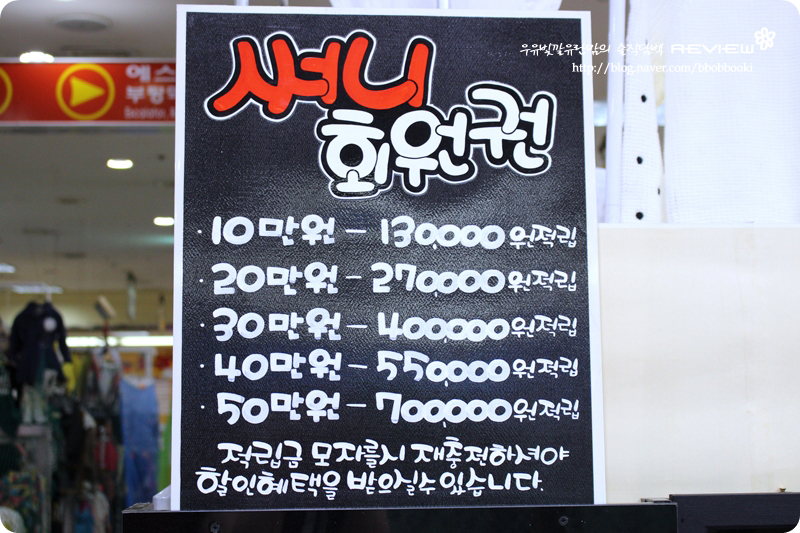 우유빛깔유런맘의 순정덤백 REVIEW
http://blog.naver.com/bbobbooki
에스
부평역
셔니
회원권
· 10만원 - 130,000원적립
· 20만원 - 270,000원적립
· 30만원 - 400,000원적립
· 40만원 - 550,000원적립
· 50만원 - 700,000원적립
적립금 모자를시 재충전하셔야
할인혜택을 받으실수 있습니다.